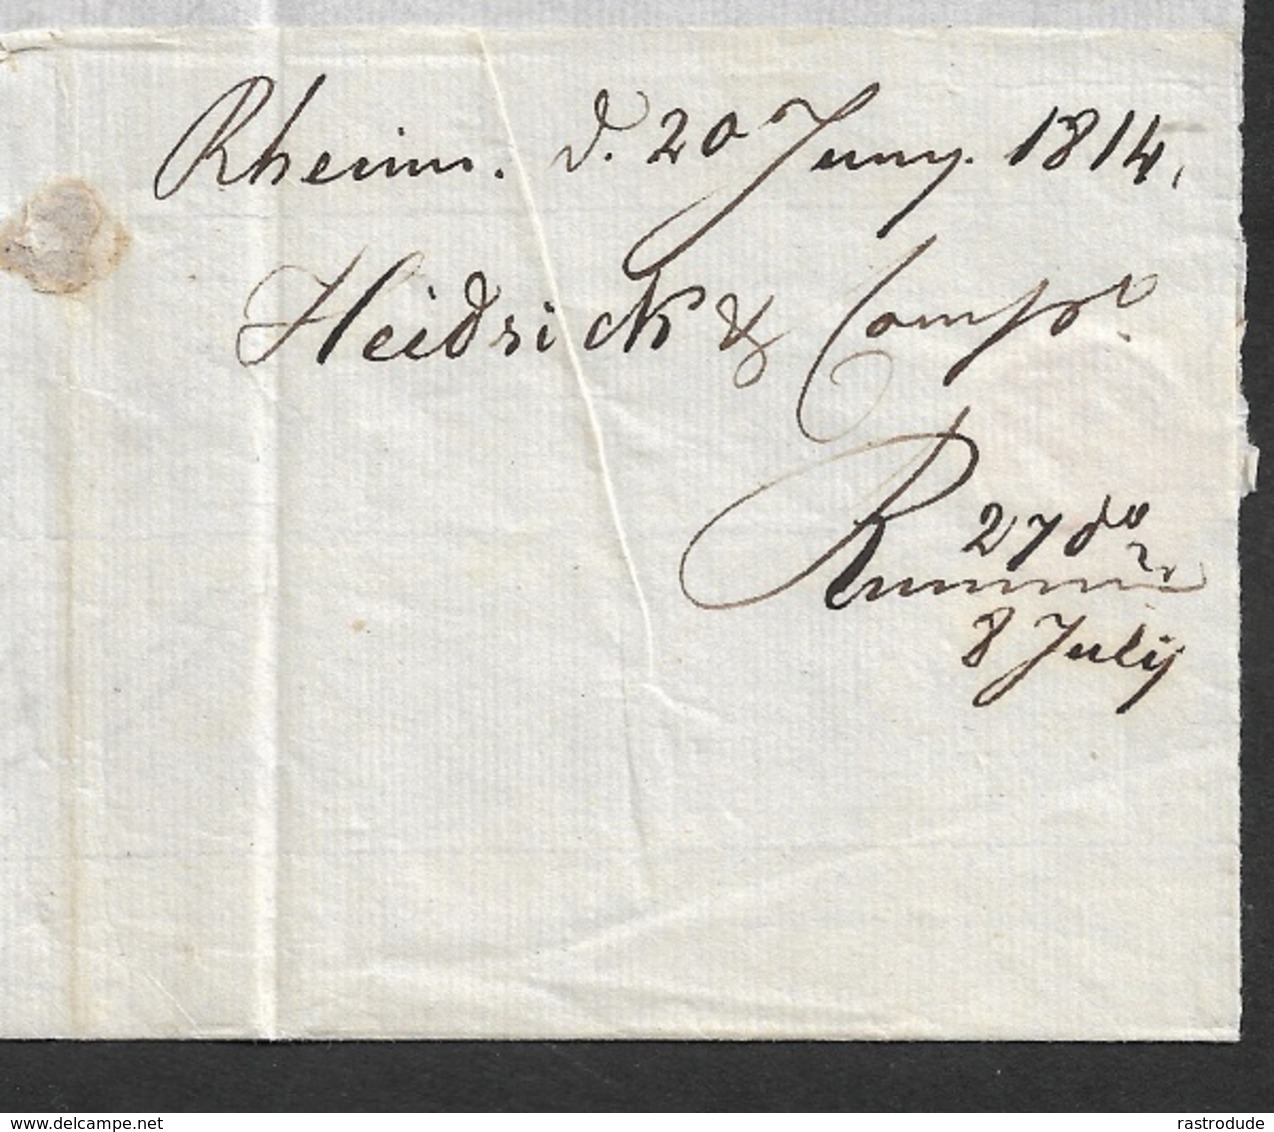 Rheims. d. 20 Juny. 1814,
Heidsick & Compe.
R 27 do
8 July
www.delcampe.net
rastrodude